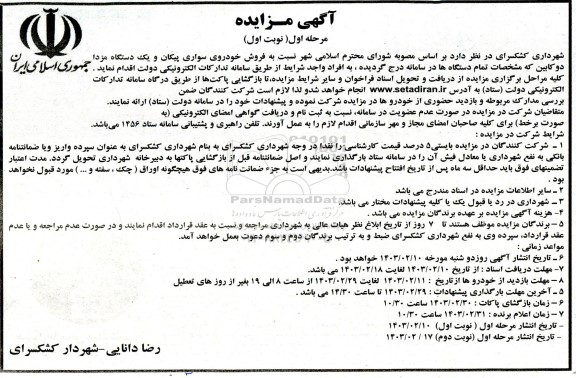 آگهی مزایده
مرحله اول( نوبت اول)
جمهوری اسلامی ایران
شهرداری کشکسرای در نظر دارد بر اساس مصوبه شورای محترم اسلامی شهر نسبت به فروش خودروی سواری پیکان و یک دستگاه مزدا
دوکابین که مشخصات تمام دستگاه ها در سامانه درج گردیده ، به افراد واجد شرایط از طریق سامانه تدارکات الکترونیکی دولت اقدام نماید .
کلیه مراحل برگزاری مزایده از دریافت و تحویل اسناد فراخوان و سایر شرایط مزایده،تا بازگشایی پاکت‌ها از طریق درگاه سامانه تدارکات
الکترونیکی دولت (ستاد) به آدرس www.setadiran.ir انجام خواهد شدو لذا لازم است شرکت کنندگان ضمن
بررسی مدارک مربوطه و بازدید حضوری از خودرو ها در مزایده شرکت نموده و پیشنهادات خود را در سامانه دولت (ستاد) ارائه نمایند.
متقاضیان شرکت در مزایده در صورت عدم عضویت در سامانه، نسبت به ثبت نام و دریافت گواهی امضای الکترونیکی (به
صورت برخط) برای کلیه صاحبان امضای مجاز و مهر سازمانی اقدام لازم را به عمل آورند. تلفن راهبری و پشتیبانی سامانه ستاد ۱۴۵۶ می‌باشد.
شرایط شرکت در مزایده :
۱ ـ شرکت کنندگان در مزایده بایستی۵ درصد قیمت کارشناسی را نقدا در وجه شهرداری کشکسرای به بنام شهرداری کشکسرای به عنوان سپرده واریز ویا ضمانتنامه
بانکی به نفع شهرداری یا معادل فیش آن را در سامانه ستاد بارگذاری نمایند و اصل ضمانتنامه قبل از بازگشایی پاکتها به دبیرخانه شهرداری تحویل گردد. مدت اعتبار
تضمینهای فوق باید حداقل سه ماه پس از تاریخ افتتاح پیشنهادات باشد.بدیهی است به جزء ضمانت نامه های فوق هیچگونه اوراق ( چک ، سفته و ... ) مورد قبول نخواهد
بود .
۲ ـ سایر اطلاعات مزایده در اسناد مندرج می باشد
۳ ـ شهرداری در رد یا قبول یک یا کلیه پیشنهادات مختار می باشد.
۴- هزینه آگهی مزایده بر عهده برندگان مزایده می باشد .
۵ – برندگان مزایده موظف هستند تا ۷ روز از تاریخ ابلاغ نظر هیات عالی به شهرداری مراجعه و نسبت به عقد قرارداد اقدام نمایند و در صورت عدم مراجعه و یا عدم
عقد قرارداد، سپرده وی به نفع شهرداری کشکسرای ضبط و به ترتیب برندگان دوم و سوم دعوت بعمل خواهد آمد.
مواعد زمانی :
۶ ـ تاریخ انتشار آگهی روزدو شنبه مورخه ۱۴۰۳/۰۲/۱۰ خواهد بود .
۷- مهلت دریافت اسناد : از تاریخ ۱۴۰۳/۰۲/۱۰ لغایت ۱۴۰۳/۰۲/۱۸ می باشد.
۸ – مهلت بازدید از خودرو ها ازتاریخ : ۱۴۰۳/۰۲/۱۱ لغایت ۱۴۰۳/۰۲/۲۹ از ساعت ۸ الی ۱۹ بغیر از روز های تعطیل
۵ ـ آخرین مهلت بارگذاری پیشنهادات : ۱۴۰۳/۰۲/۲۹ تا ساعت ۱۴/۳۰ می باشد .
۶ – زمان بازگشای پاکات : ۱۴۰۳/۰۲/۳۰ ساعت ۱۰/۳۰
۷ – زمان اعلام برنده : ۱۴۰۳/۰۲/۳۱ ساعت ۱۰/۳۰
- تاریخ انتشار مرحله اول ( نوبت اول) ۱۴۰۳/۰۲/۱۰
– تاریخ انتشار مرحله اول (نوبت دوم) ۱۷ / ۱۴۰۳/۰۲
رضا دانایی-شهردار کشکسرای
ParsNamadData